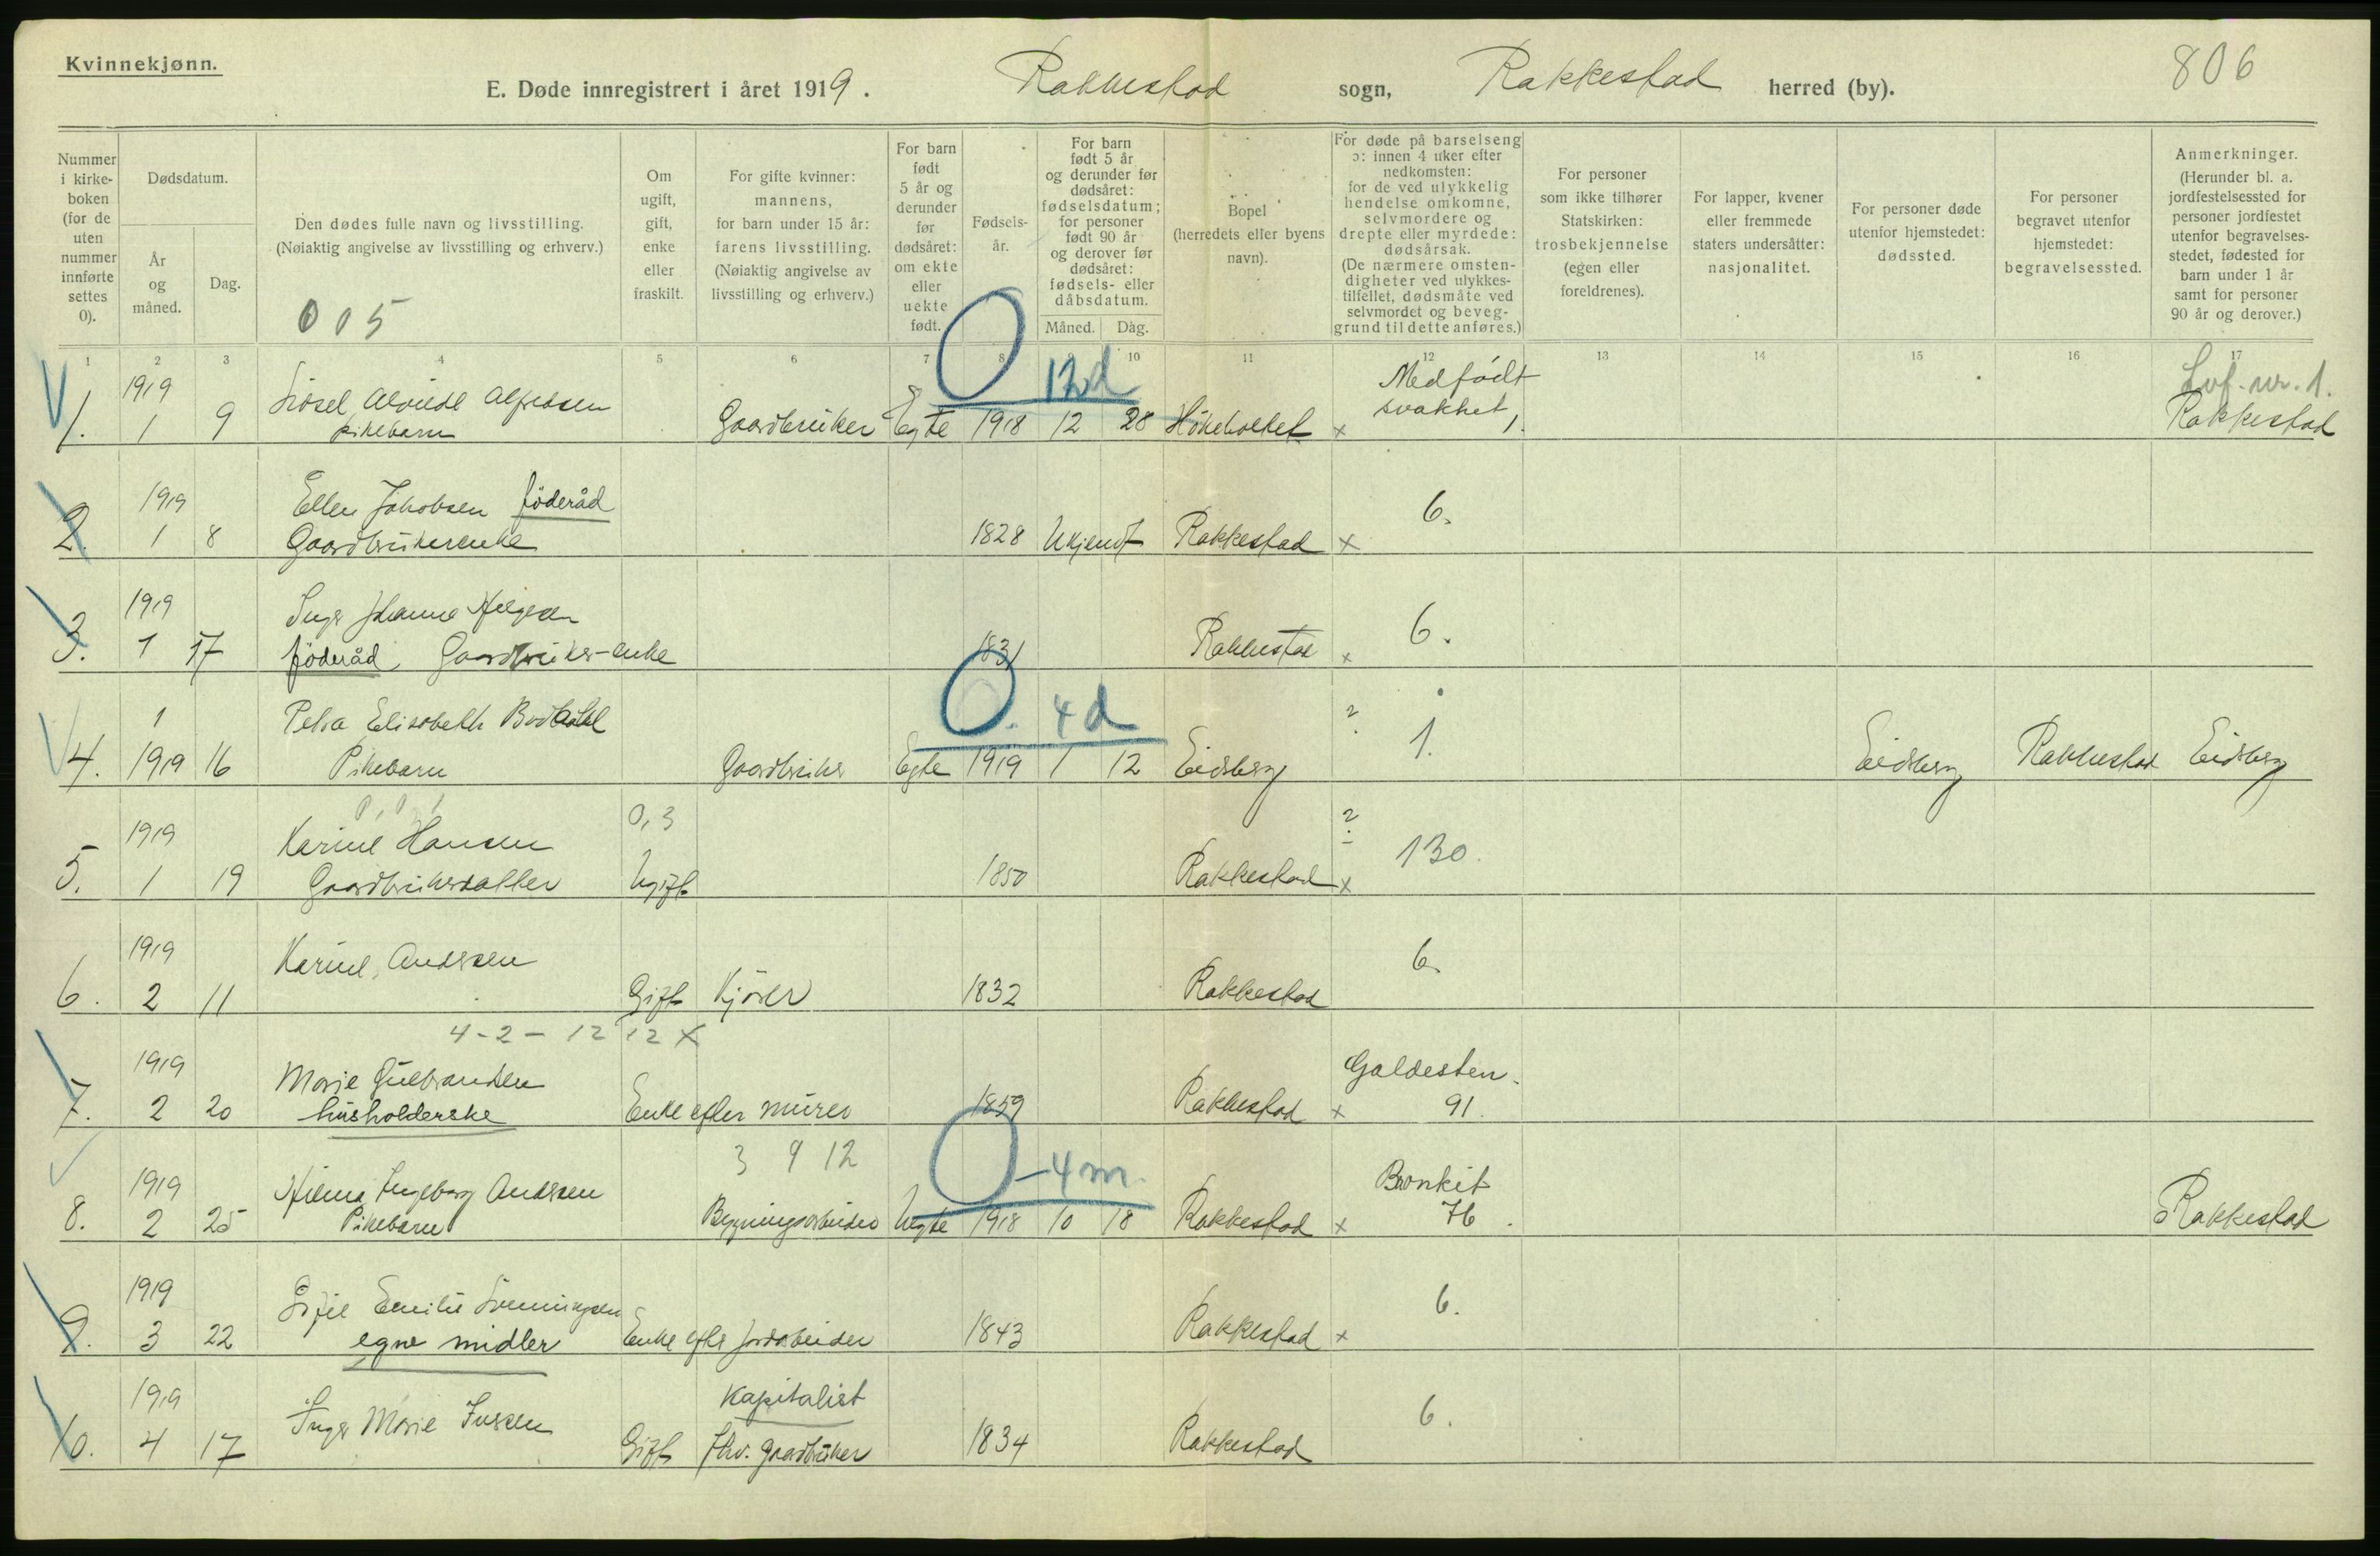 Kvinnekjønn.
E. Døde innregistrert i året 1919. Rakkestad sogn, Rakkestad herred (by). 806
Nummer i kirkeboken (for de uten nummer innførte settes 0).
Dødsdatum.
År og måned.
Dag.
Den dødes fulle navn og livsstilling.
(Nøiaktig angivelse av livsstilling og erhverv.)
005
Om ugift, gift, enke eller fraskilt.
For gifte kvinner: mannens, for barn under 15 år: farens livsstilling. (Nøiaktig angivelse av livsstilling og erhverv.)
For barn født 5 år og derunder før dødsåret: om ekte eller uekte født.
Fødselsår.
For barn født 5 år og derunder før dødsåret: fødselsdatum; for personer født 90 år og derover før dødsåret: fødsels- eller dåbsdatum.
Måned. Dag.
Bopel (herredets eller byens navn).
For døde på barselseng ɔ: innen 4 uker efter nedkomsten: for de ved ulykkelig hendelse omkomne, selvmordere og drepte eller myrdede: dødsårsak. (De nærmere omstendigheter ved ulykkestilfellet, dødsmåte ved selvmordet og beveggrund til dette anføres.)
For personer som ikke tilhører Statskirken: trosbekjennelse (egen eller foreldrenes).
For lapper, kvener eller fremmede staters undersåtter: nasjonalitet.
For personer døde utenfor hjemstedet: dødssted.
For personer begravet utenfor hjemstedet: begravelsessted.
Anmerkninger. (Herunder bl. a. jordfestelsessted for personer jordfestet utenfor begravelsesstedet, fødested for barn under 1 år samt for personer 90 år og derover.)
1 2 3 4 5 6 7 8 10 11 12 13 14 15 16 17
1919 0 12d Medfødt
1. 1 9 Alfredsen Gaardbruker Egte 1918 12 28 x svakhet 1. Rakkestad
pikebarn
1919 Ellen Jakobsen föderåd 6.
2. 1 8 Gaardbrukerenke 1828 Ukjendt Rakkestad x
1919 Inger Johanne Helgesen 6.
3. 1 17 föderåd Gaardbruker-enke 1831 Rakkestad x
1 Petra Elisabeth 0. 4d ? 1.
4. 1919 16 Pikebarn Gaardbruker Egte 1919 1 12 Eidsberg Eidsberg Rakkestad Eidsberg
0,3
1919 Karine Hansen ? 130.
5. 1 19 Gaardbrukerdatter Ugift 1850 Rakkestad x
1919 Karine Andersen 6.
6. 2 11 Gift Kjører 1832 Rakkestad
4-2-12 12 X
1919 Marie Gulbrandsen Galdesten.
7. 2 20 husholderske Enke efter murer 1859 Rakkestad x 91.
3 9 12
1919 Hilma Ingeborg Andersen 0 -4m. Bronkit
8. 2 25 Pikebarn Bygningsarbeider Uegte 1918 10 18 Rakkestad x 76. Rakkestad
1919 Emilie 6.
9. 3 22 egne midler Enke efter jordarbeider 1843 Rakkestad x
1919 Inger Marie kapitalist 6.
10. 4 17 Gift fhv. gaardbruker 1834 Rakkestad